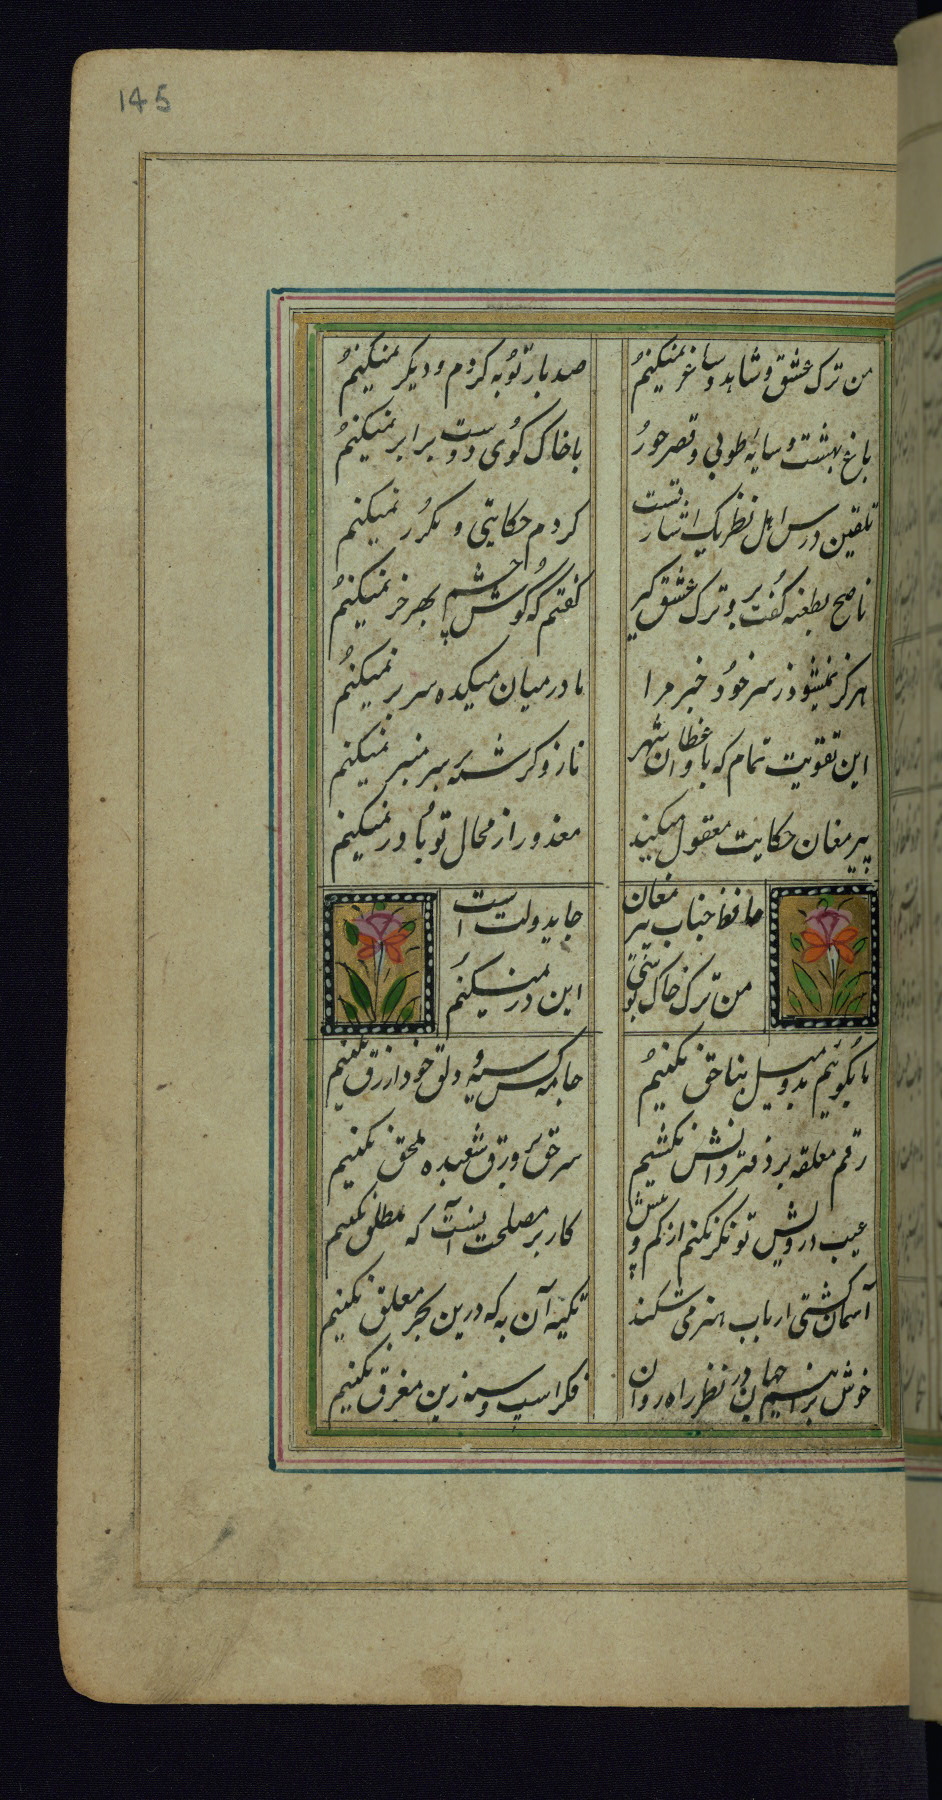 145
من ترک عشق و شاهد و ساغر نمیکنم
صد بار توبه کردم و دیگر نمیکنم
باغ بهشت و سایه طوبی و قصر حور
با خاک کوی دوست برابر نمیکنم
تلقین درس اهل نظر یک اشارتست
کردم حکایتی و مکرر نمیکنم
ناصح بطعنه گفت برو ترک عشق گیر
گفتم که گوش بهر خر نمیکنم
هرگز نمیشود ز سر خود خبر مرا
تا در میان میکده سر بر نمیکنم
این تقویت تمام که با واعظان شهر
ناز و کرشمه بر سر منبر نمیکنم
پیر مغان حکایت معقول میکند
معذورم از محال تو باور نمیکنم
حافظ جناب پیر مغان
جای دولت است
من ترک خاک بوسی
این در نمیکنم
ما نگوئیم بد و میل بناحق نکنیم
جامه کس سیه و دلق خود ازرق نکنیم
رقم مغلطه بر دفتر دانش نکشیم
سر حق بر ورق شعبده ملحق نکنیم
عیب درویش تونکر نکنم از کم و بیش
کار بر مصلحت آنست که مطلق نکنیم
آسمان کشتی ارباب هنر می شکند
تکیه آن به که درین بحر معلق نکنیم
خوش برانیم جهان در نظر راه روان
فکر اسب سیه و زین مغرق نکنیم